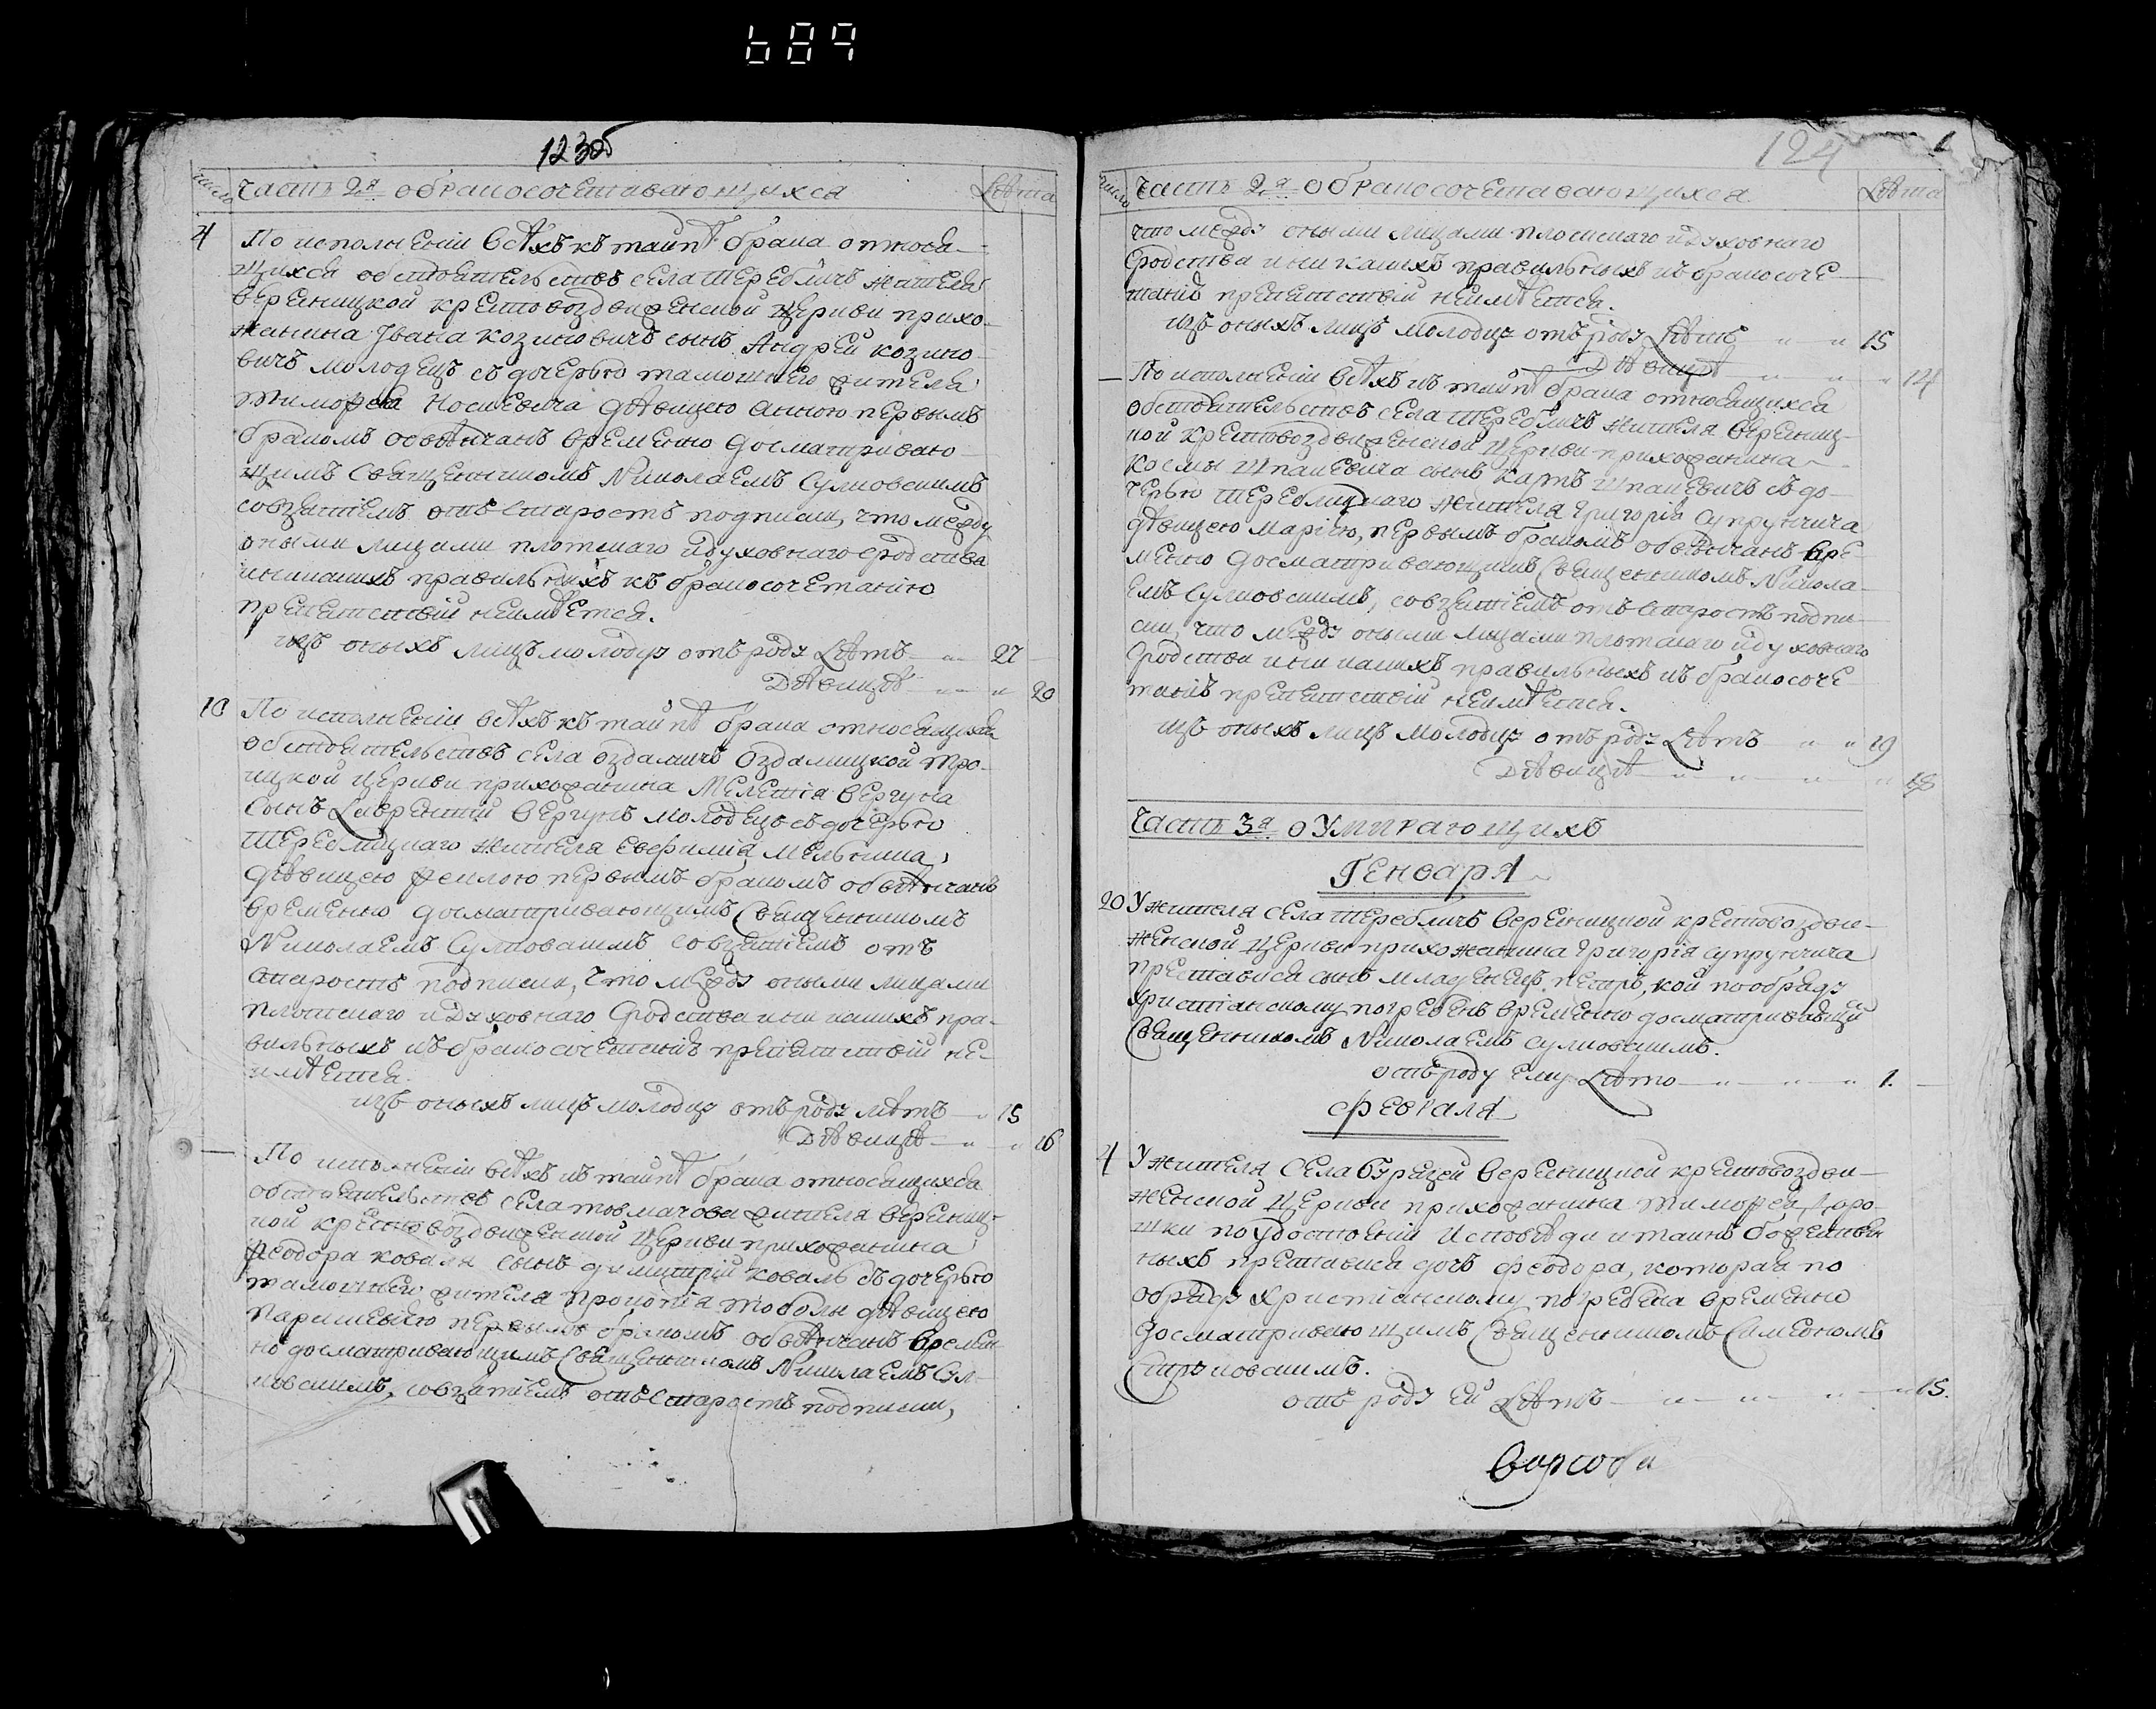 689
123об
число Часть 2я о бракосочетавающихся Лѣта
4 По исполненіи всѣхъ къ тайнѣ брака относя-
щихся обстоятельствъ села Теребличъ жителя
Вереницкой Крестовоздвиженской Церкви прихо-
жанина Ивана Козмовичъ сынъ Андрей Козмо-
вичъ молодецъ съ дочерью тамошнего жителя
Тимофея Носкевича дѣвицею Анною первымъ
бракомъ обвѣнчанъ временно досматриваю-
щимъ Священникомъ Николаемъ Сулковскимъ
совзятіемъ отъ Старостъ подписки, что между
оными лицами плотскаго и духовнаго сродства
иникакихъ правильныхъ къ бракосочетанію
препятствій неимѣется.
изъ оныхъ лицъ молодцу отъ роду Лѣтъ 27
Дѣвицѣ 20
10 По исполненіи всѣхъ къ тайнѣ брака относящихся
обстоятельствъ села Оздамичъ Оздамицкой Тро-
ицкой Церкви прихожанина Мелетія Вергуна
сынъ Лаврентій Вергунъ молодецъ съ дочерью
Теребличнаго жителя Евфимія Мельника,
дѣвицею Феклою первымъ бракомъ обвѣнчанъ
временно досматривающимъ Священникомъ
Николаемъ Сулковскимъ совзятіемъ отъ
Старостъ подписки, что между оными лицами
плотскаго и Духовнаго Сродства иникакихъ пра-
вильныхъ къ бракосочетанію препятствій не-
имѣется.
изъ оныхъ лицъ молодцу отъ роду лѣтъ 15
Дѣвицѣ 16
— По исполненіи всѣхъ къ тайнѣ брака относящихся
обстоятельствъ села Товмачова жителя Верениц-
кой Крестовоздвиженской Церкви прихожанина
Феодора Коваля сынъ Димитрій Коваль съ дочерью
тамошнего жителя Прокопія Тоболы дѣвицею
Парискевіею первымъ бракомъ обвѣнчанъ времен-
но досматривающимъ Священникомъ Николаемъ Сул-
ковскимъ, совзятіемъ отъ Старостъ подписки,
124
число Часть 2я о бракосочетавающихся Лѣта
что между оными лицами плотскаго и духовнаго
сродства иникакихъ правильныхъ къ бракосоче-
танію препятствій неимѣется.
изъ оныхъ лицъ молодцу отъ роду Лѣтъ 15
Дѣвицѣ 14
— По исполненіи всѣхъ къ тайнѣ брака относящихся
обстоятельствъ села Теребличъ жителя Верениц-
кой Крестовоздвиженской Церкви прихожанина
Космы Шпакевича сынъ Карпъ Шпакевичъ съ до-
черью Теребличнаго жителя Григорія Супрунчича
дѣвицею Маріею, первымъ бракомъ обвѣнчанъ вре-
менно досматривающимъ Священникомъ Никола-
емъ Сулковскимъ, совзятіемъ отъ Старостъ подпи-
ски, что между оными лицами плотскаго и духовнаго
Сродства иникакихъ правильныхъ къ бракосоче-
танію препятствій неимѣется.
изъ оныхъ лицъ молодцу отъ роду Лѣтъ 19
Дѣвицѣ 18
Часть 3я о Умирающихъ
Генваря
20 У жителя села Теребличъ Вереницкой Крестовоздви-
женской Церкви прихожанина Григорія Супрунчича
преставися сынъ младенецъ Петръ, кой по обряду
Христіанскому погребенъ временно досматривающій
Священникомъ Николаемъ Сулковскимъ.
отъ роду ему Лѣто 1.
Февраля
4 У жителя Села Буразей Вереницкой Крестовоздви-
женской Церкви прихожанина Тимофея Даро-
шки по удостоеніи Исповѣди и таинъ божествен-
ныхъ преставися дочь Феодора, которая по
обряду Христіанскому погребена временно
досматривающимъ Священникомъ Симеономъ
отъ роду ей Лѣтъ 15.